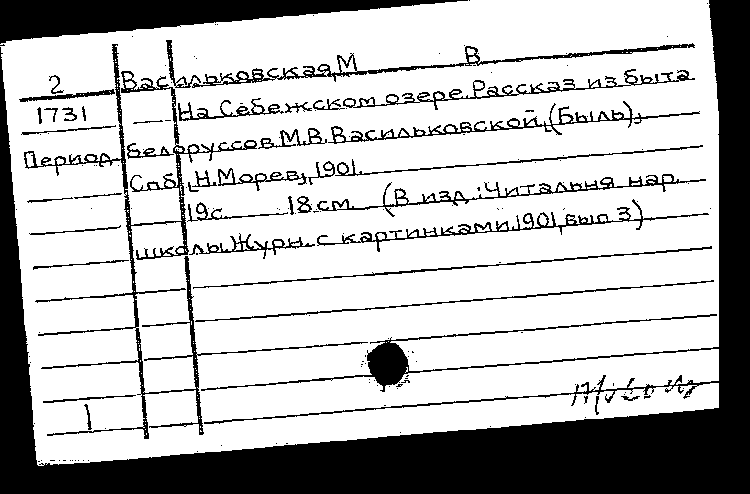 2 Васильковская, М В
1731 На Себежском озере. Рассказ из быта
Период. белоруссов М.В. Васильковской, (Быль),
Спб, Н. Морев, 1901.
19с. 18 см. (В изд.: Читальня нар.
школы. Журн. с картинками. 1901, вып 3)
1